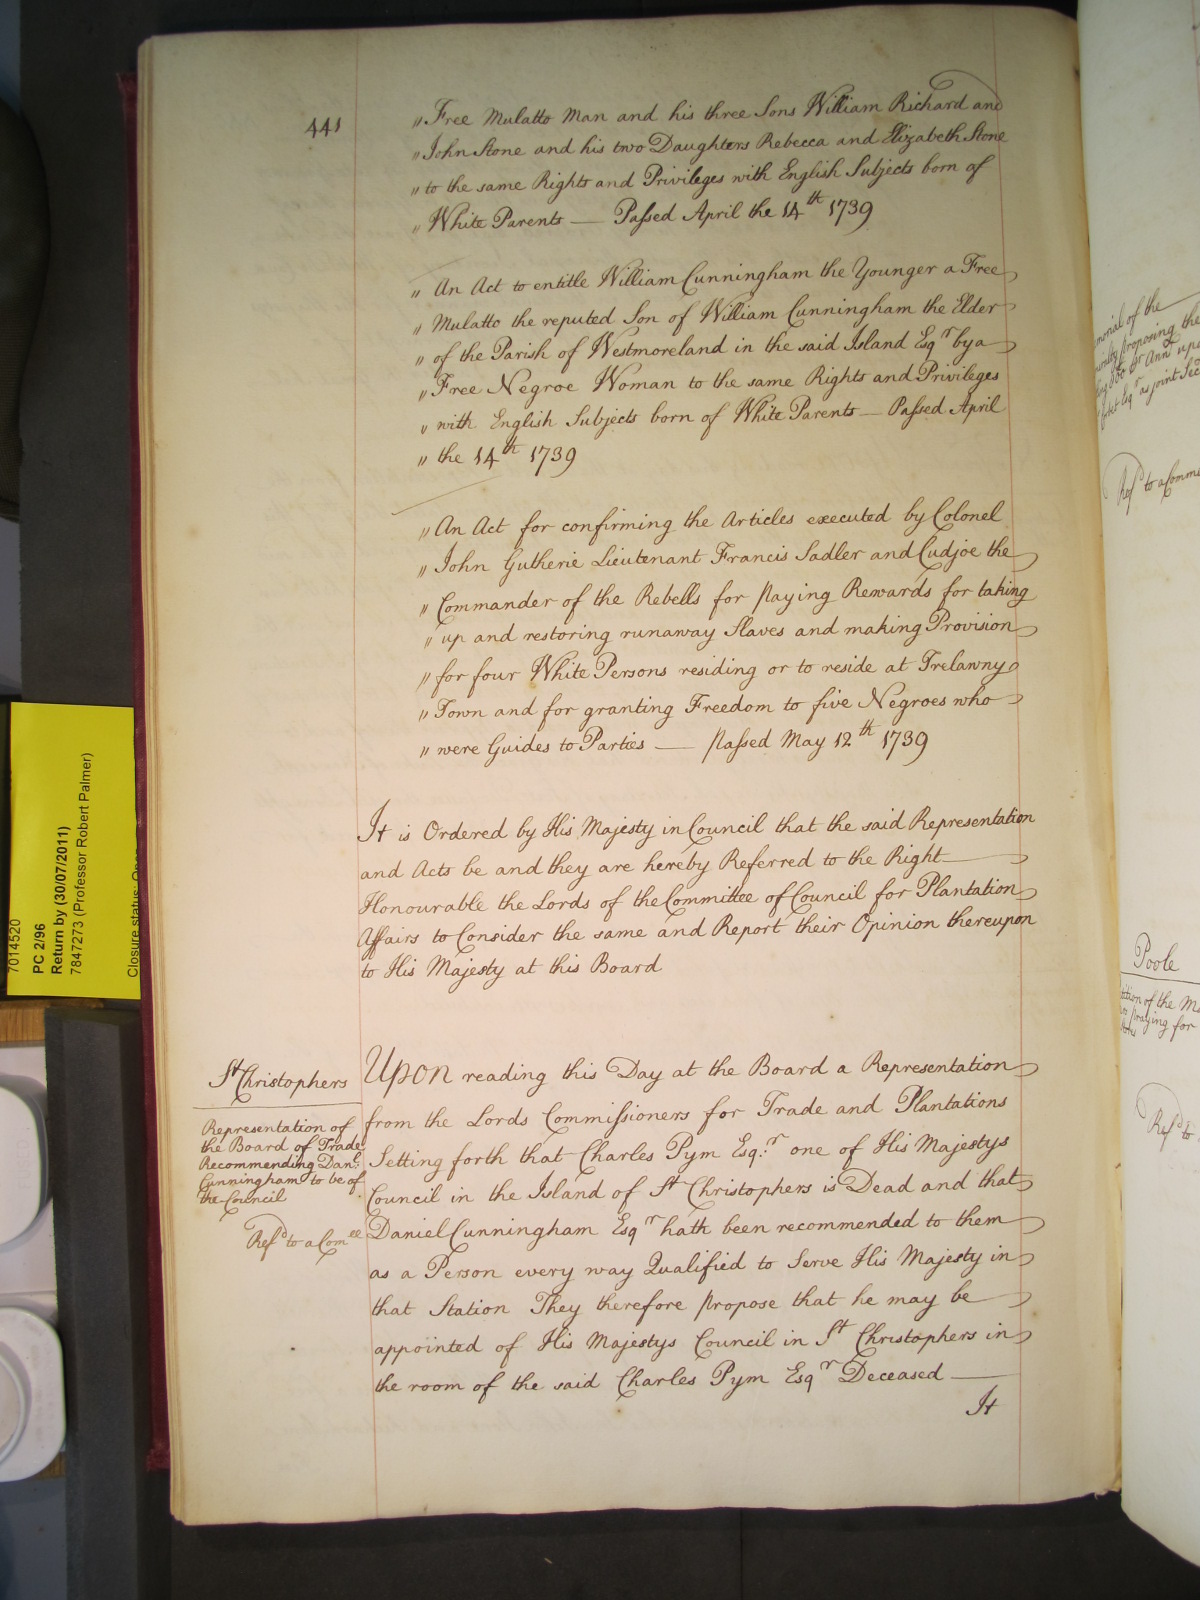 441
" Free Mulatto Man and his three Sons William Richard and
" John Stone and his two Daughters Rebecca and Elizabeth Stone
" to the same Rights and Privileges with English Subjects born of
" White Parents — Passed April the 14th 1739
" An Act to entitle William Cunningham the Younger a Free
" Mulatto the reputed Son of William Cunningham the Elder
" of the Parish of Westmoreland in the said Island Esqr by a
" Free Negroe Woman to the same Rights and Privileges
" with English Subjects born of White Parents — Passed April
" the 14th 1739
" An Act for confirming the Articles executed by Colonel
" John Gutherie Lieutenant Francis Sadler and Cudjoe the
" Commander of the Rebells for paying Rewards for taking
" up and restoring runaway Slaves and making Provision
" for four White Persons residing or to reside at Trelawny
" Town and for granting Freedom to five Negroes who
" were Guides to Parties — passed May 12th 1739
It is Ordered by His Majesty in Council that the said Representation
and Acts be and they are hereby Referred to the Right
Honourable the Lords of the Committee of Council for Plantation
Affairs to Consider the same and Report their Opinion thereupon
to His Majesty at this Board
St Christophers
Representation of
the Board of Trade
Recommending Danl:
Cunningham to be of
the Council
Refd to a Comee
Upon reading this Day at the Board a Representation
from the Lords Commissioners for Trade and Plantations
Setting forth that Charles Pym Esq:r one of His Majestys
Council in the Island of St Christophers is Dead and that
Daniel Cunningham Esqr hath been recommended to them
as a Person every way Qualified to Serve His Majesty in
that Station They therefore propose that he may be
appointed of His Majestys Council in St Christophers in
the room of the said Charles Pym Esqr Deceased —
It
7014520
PC 2/96
Return by (30/07/2011)
7847273 (Professor Robert Palmer)
Closure status: Open
of the
proposing the
as joint Sec
Refd to a Comm
Poole
of the
praying for
Refd to